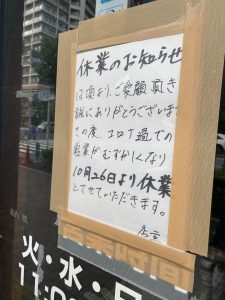 休業のお知らせ
日頃より、ご愛顧頂き
誠にありがとうございます
この度、コロナ過での
営業がむずかしくなり
10月26日より休業
とさせていただきます。
店主
営業時間
火・水・日
11:00